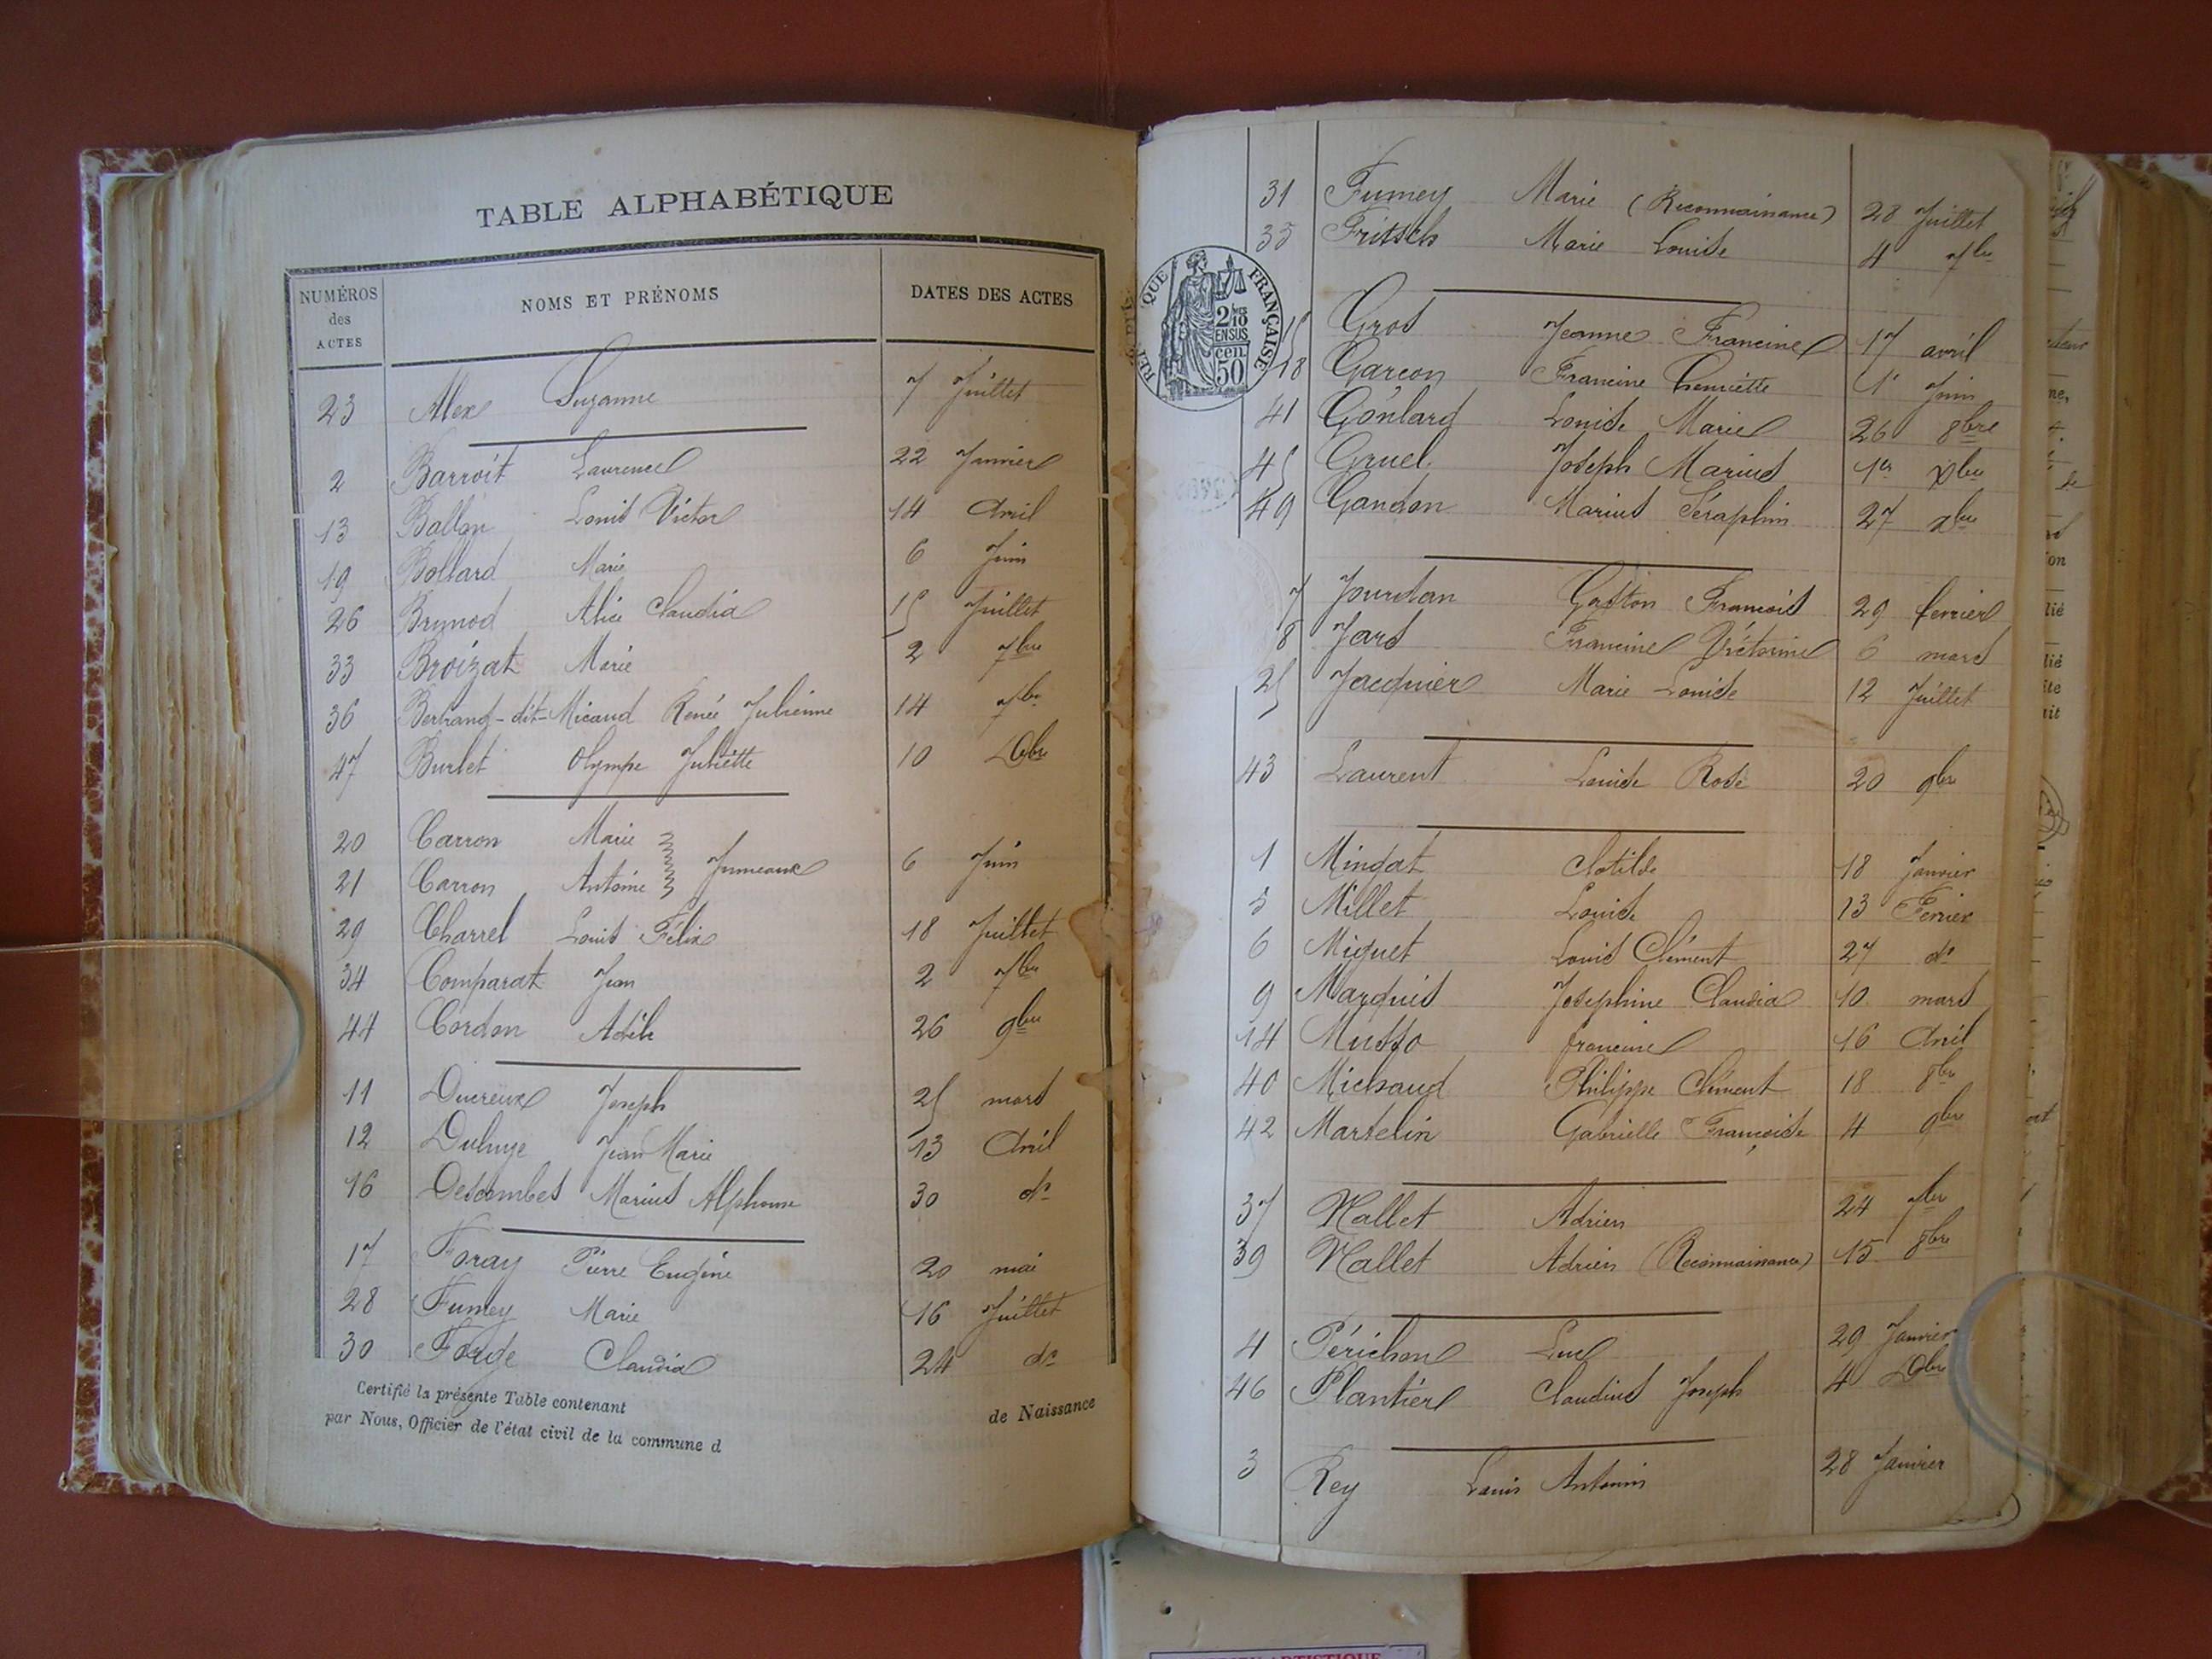 TABLE ALPHABÉTIQUE
NUMÉROS des ACTES NOMS ET PRÉNOMS DATES DES ACTES
23 Alex Suzanne 7 Juillet
2 Barroit Laurence 22 Janvier
13 Ballon Louis Victor 14 Avril
19 Bollard Marie 6 Juin
26 Brunod Alice Claudia 15 Juillet
33 Broizat Marie 2 7bre
36 Bertrand-dit-Micaud Renée Julienne 14 7bre
47 Burlet Olympe Juliette 10 Xbre
20 Carron Marie
21 Carron Antoine Jumeaux 6 Juin
29 Charrel Louis Félix 18 Juillet
34 Comparat Jean 2 7bre
44 Cordon Adèle 26 9bre
11 Ducreux Joseph 25 mars
12 Jean Marie 13 Avril
16 Descombes Marius Alphonse 30 do
17 Foray Pierre Eugène 20 mai
28 Fumey Marie 16 Juillet
30 Forge Claudia 24 do
Certifié la présente Table contenant de Naissance
par Nous, Officier de l'état civil de la commune d
31 Fumey Marie (Reconnaissance) 28 Juillet
35 Fritsch Marie Louise 4 7bre
RÉPUBLIQUE FRANÇAISE
2/10 EN SUS
50 cen
15 Gros Jeanne Francine 17 avril
18 Garcon Francine Henriette 1r Juin
41 Goulard Louise Marie 26 8bre
45 Gruel Joseph Marius 1er Xbre
49 Gandon Marius Séraphin 27 Xbre
7 Jourdan Gaston François 29 fevrier
8 Jars Francine Victorine 6 mars
25 Jacquier Marie Louise 12 Juillet
43 Laurent Louise Rose 20 9bre
1 Mingat Clotilde 18 Janvier
5 Millet Louise 13 Fevrier
6 Miguet Louis Clément 27 do
9 Marquis Joséphine Claudia 10 mars
14 Musso francine 16 Avril
40 Michaud Philippe Clément 18 8bre
42 Martelin Gabrielle Françoise 4 9bre
37 Nallet Adrien 24 7bre
39 Nallet Adrien (Reconnaissance) 15 8bre
4 Périchon Luc 29 Janvier
46 Plantier Claudius Joseph 4 Xbre
3 Rey Louis Antonin 28 Janvier